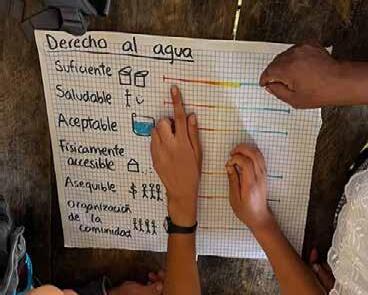 Derecho al agua
Suficiente
Saludable
Aceptable
Físicamente
accesible
Asequible
organización
de la
comunidad